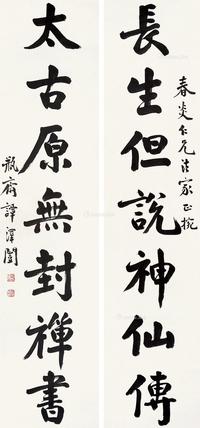 春炎仁兄法家正捥
長生但說神仙傳
太古原無封禪書
瓶齋譚澤闓